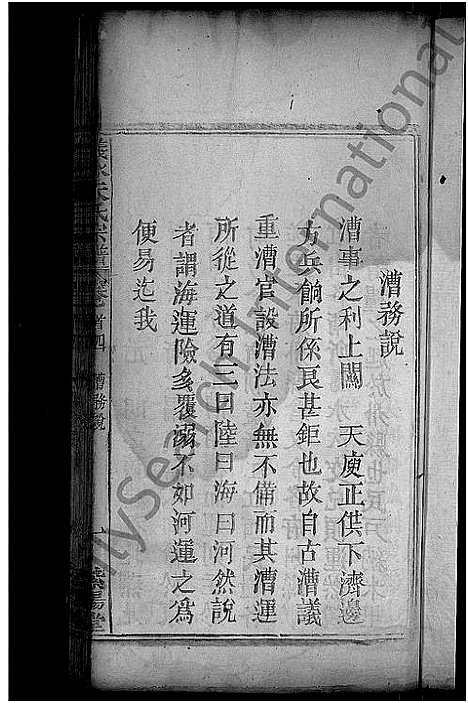 漕務說
漕事之利上關　天庾正供下濟邊
方兵餉所係良甚鉅也故自古漕議
重漕官設漕法亦無不備而其漕運
所從之道有三曰陸曰海曰河然說
者謂海運險多覆溺不如河運之為
便易迄我
氏宗譜 首四 漕務說
堂
MySearch International